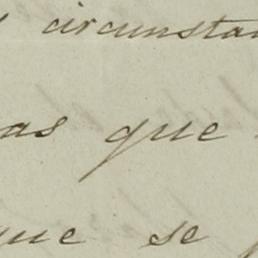 circunstan
as que
que se